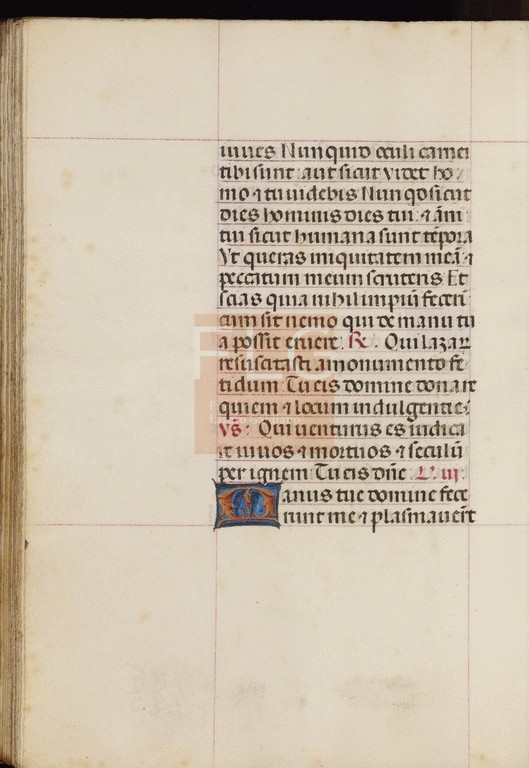 iuues Nunquid oculi carnei
tibi sunt: aut sicut videt ho/
mo ⁊ tu uidebis Nunqd sicut
dies hominis dies tui: ⁊ ãni
tui sicut humana sunt tẽpora
Vt queras iniquitatem meã: ⁊
peccatum meum scruteris Et
scias quia nihil impiũ fecerĩ
cum sit nemo qui de manu tu
a possit eruere. R. Qui lazar
resuscitasti a monumento fe
tidum: Tu eis domine dona re
quiem ⁊ locum indulgentie:
vs: Qui uenturus es iudica
re uiuos ⁊ mortuos ⁊ seculũ
per ignem: Tu eis dñe. L. iii:
Manus tue domine fece
runt me ⁊ plasmauerũt